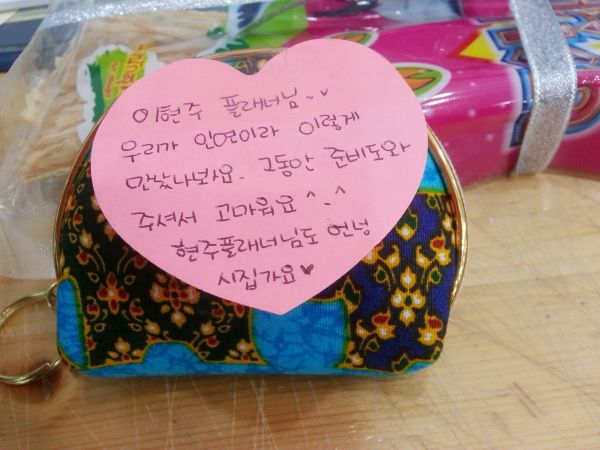 이현주 플래너님~♥
우리가 인연이라 이렇게
만났나봐요. 그동안 준비도와
주셔서 고마워요 ^.^
현주플래너님도 언넝
시집가요♥